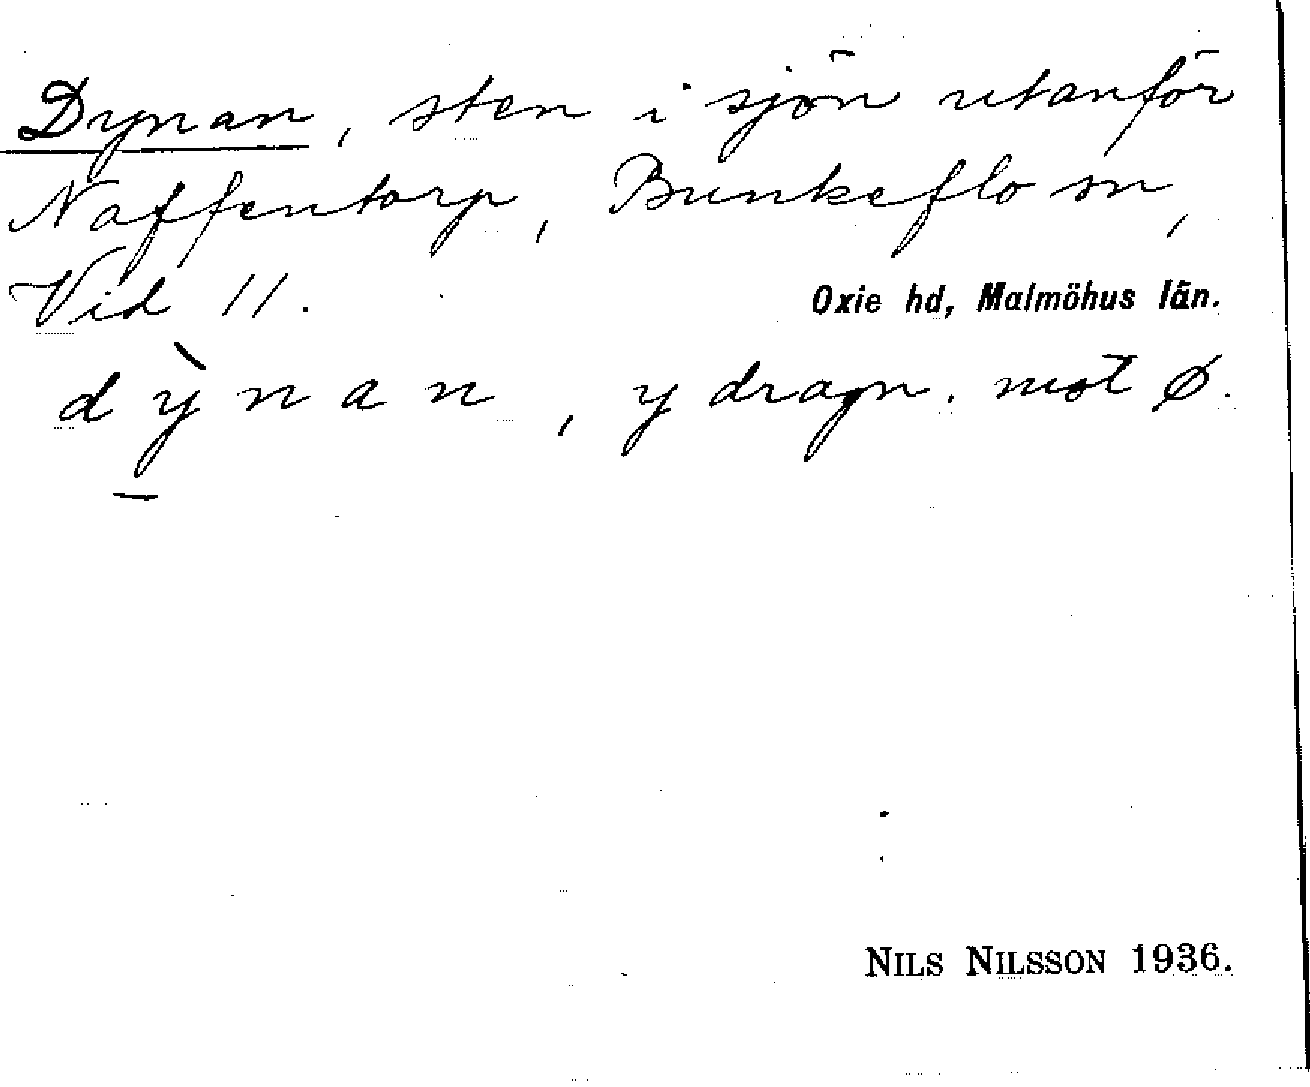 Dynan, sten i sjön utanför
Naffentorp, Bunkeflo sn,
Vid 11.
Oxie hd, Malmöhus län.
dỳnan, y dragn. mot ø.
NILS NILSSON 1936.